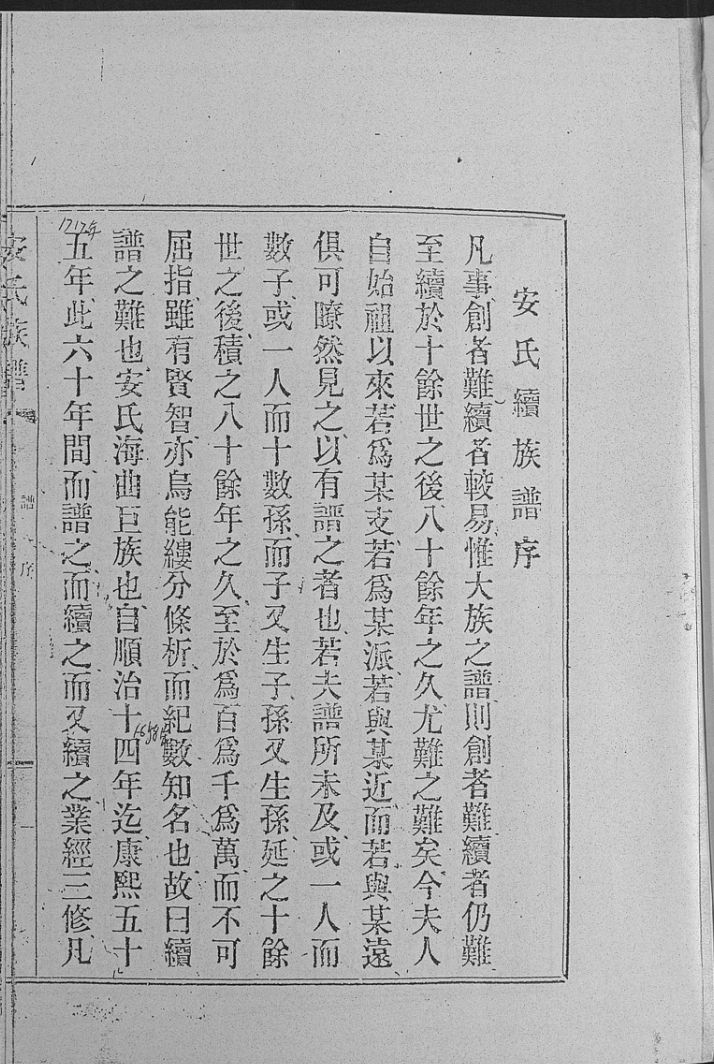 安氏續族譜序
凡事創者難續者較易惟大族之譜則創者難續者仍難
至續於十餘世之後八十餘年之久尤難之難矣今夫人
自始祖以來若爲某支若爲某派若與某近而若與某遠
俱可瞭然見之以有譜之者也若夫譜所未及或一人而
數子或一人而十數孫而子又生子孫又生孫延之十餘
世之後積之八十餘年之久至於爲百爲千爲萬而不可
屈指雖有賢智亦烏能縷分條析而紀數知名也故曰續
譜之難也安氏海曲巨族也自順治十四年迄康熙五十
1658年
五年此六十年間而譜之而續之而又續之業經三修凡
1717年
安氏族譜
譜序
一